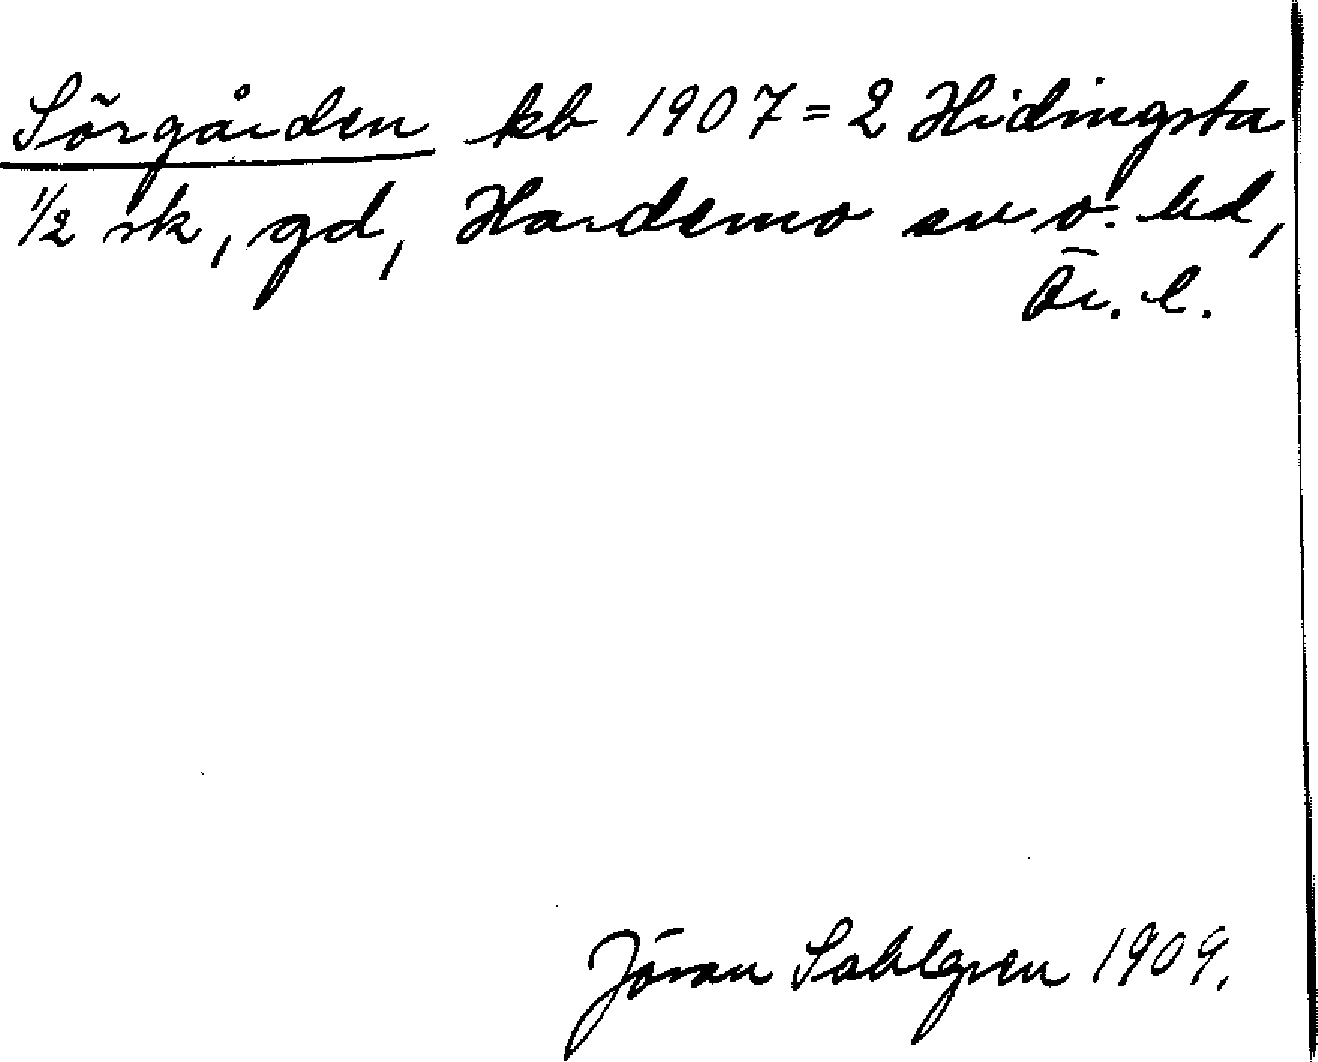 Sörgården kb 1907 = 2 Hidingsta
1/2 sk, gd, Hardemo sn o. hd,
Ör. l.
Jöran Sahlgren 1909.